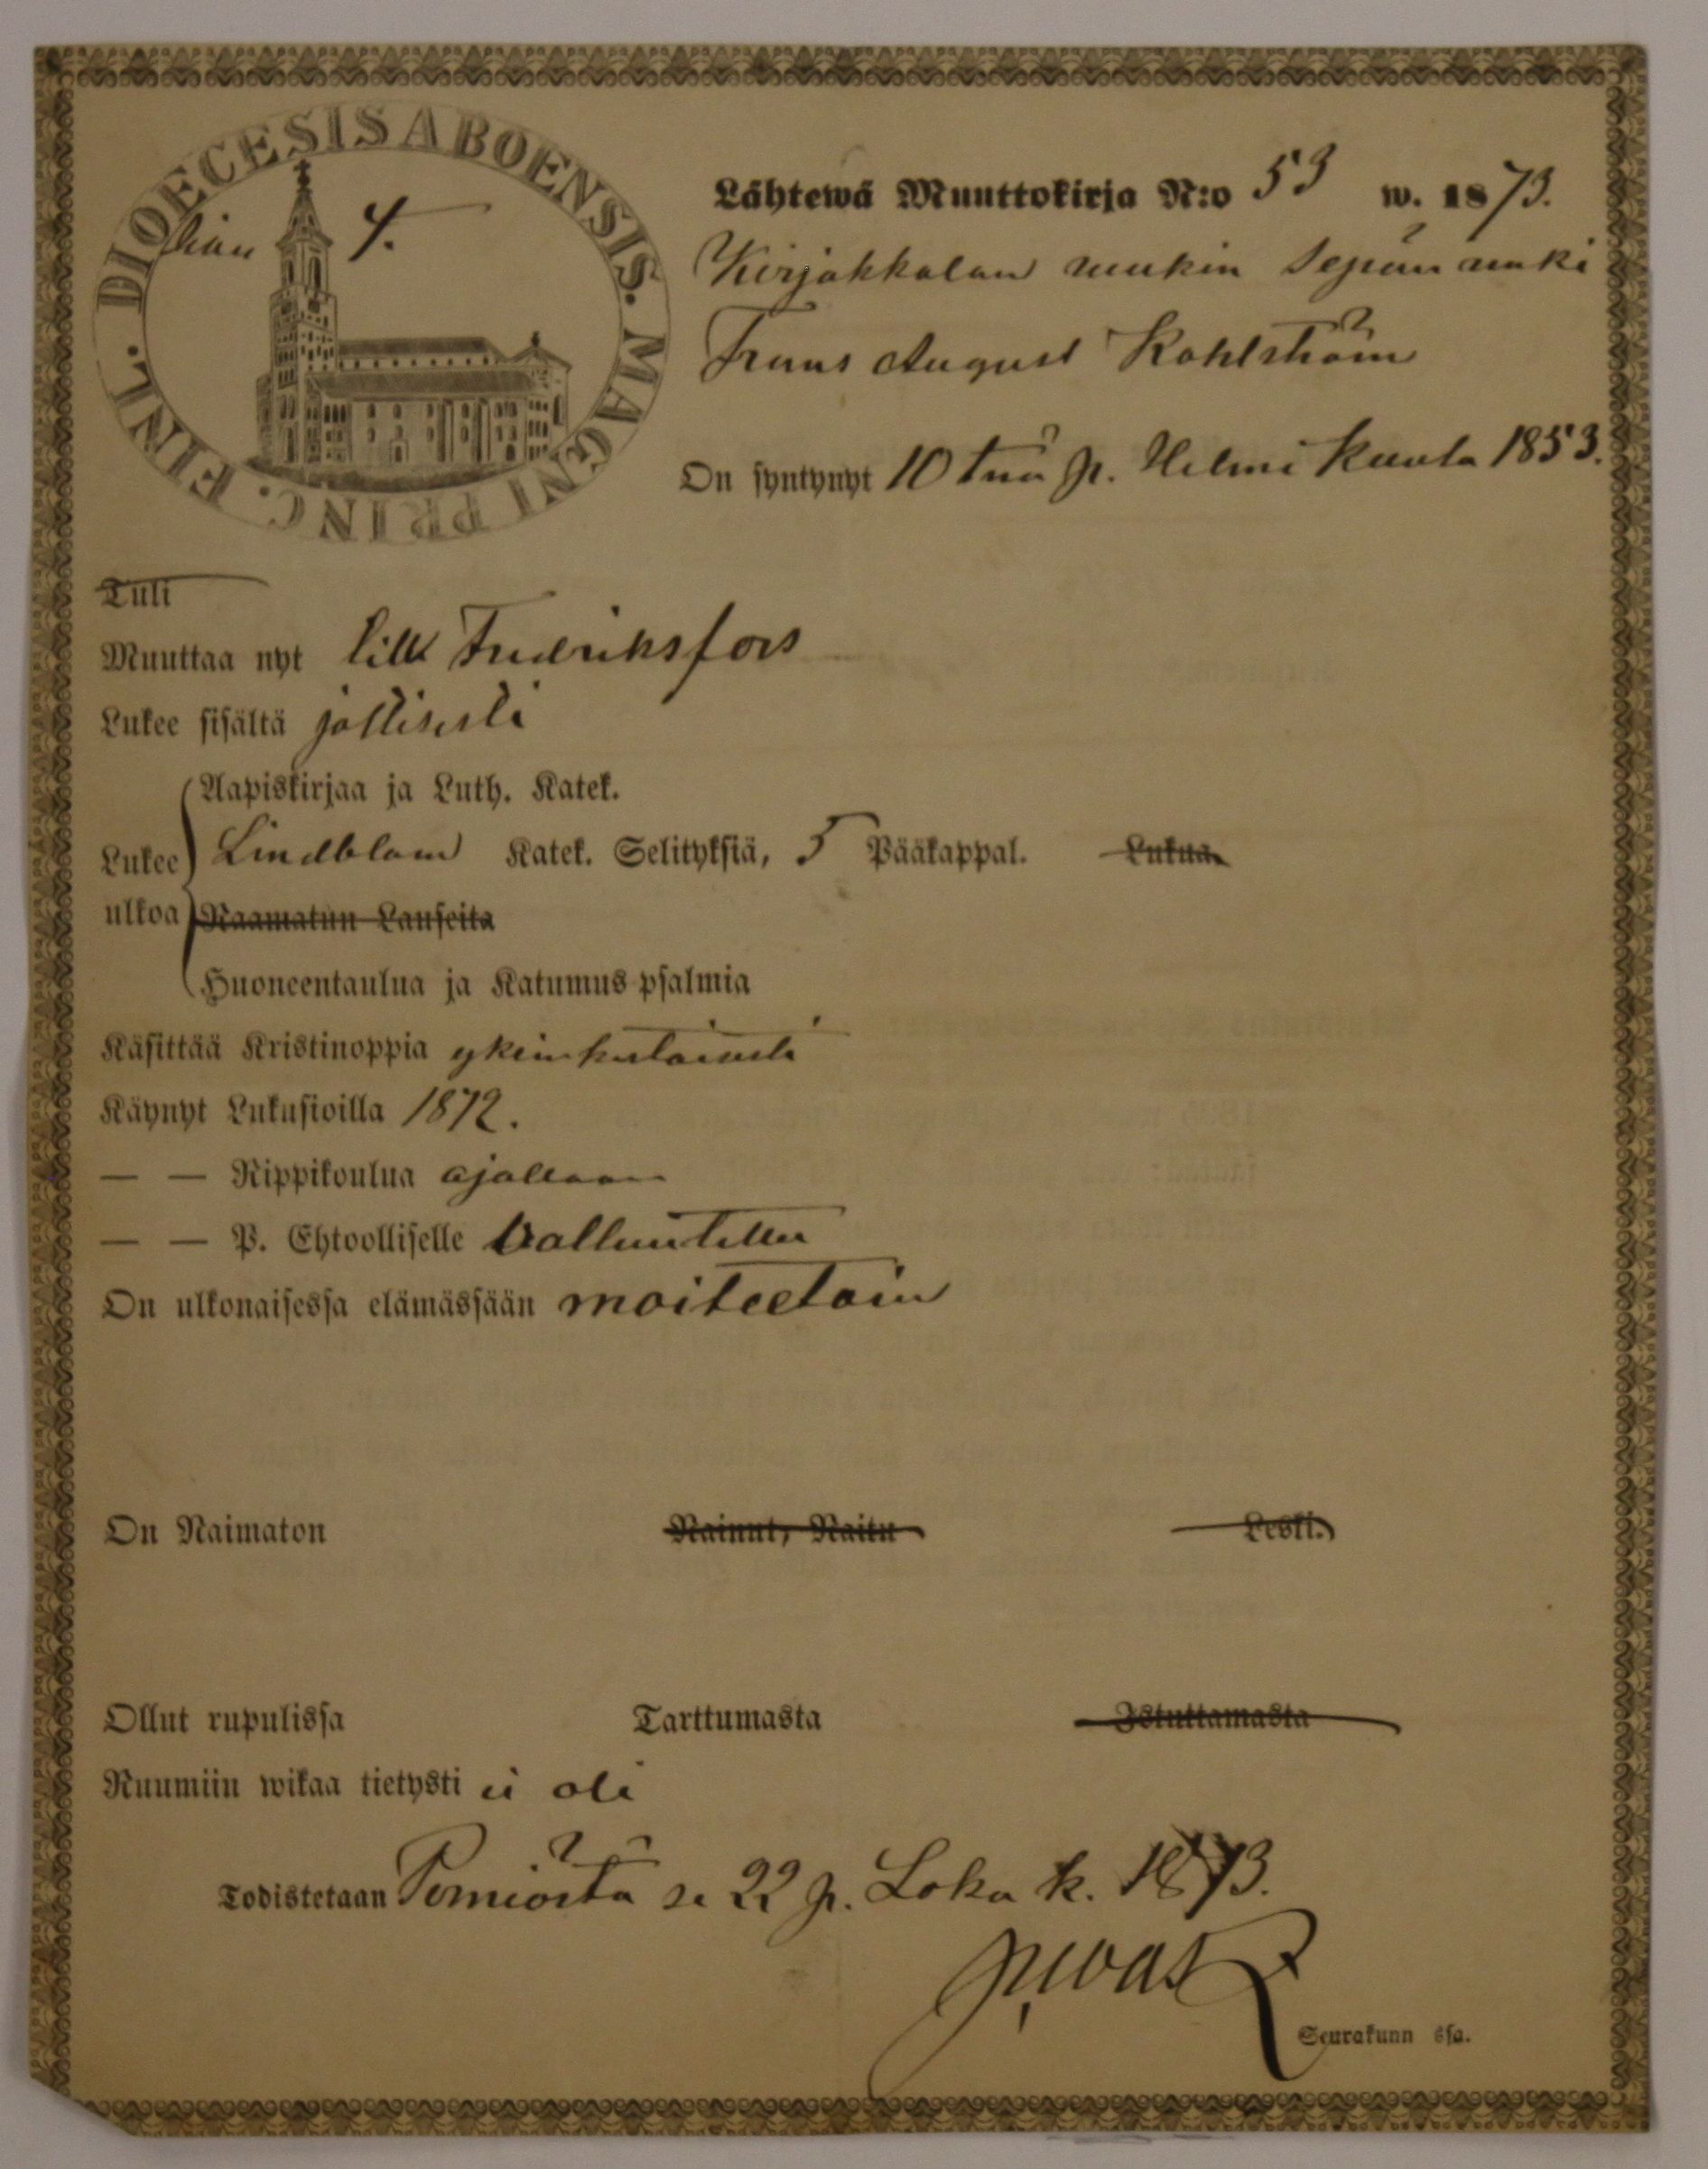 DIOECESIS ABOENSIS. MAGNI PRINC. FINL.
4.
Lähtewä Muuttokirja N:o 53 w. 1873.
Kirjakkalan ruukin Sepän renki
Frans August Kohlström
On syntynyt 10 tnä p. Helmi Kuuta 1853.
Tuli
Muuttaa nyt till Fredriksfors
Lukee sisältä jollisesti
Aapiskirjaa ja Luth. Katek.
Lukee Lindblom Katek. Selityksiä, 5 Pääkappal. Lukua.
ulkoa Raamatun Lauseita
Huoneentaulua ja Katumus psalmia
Käsittää Kristinoppia yksinkertaisesti
Käynyt Lukusioilla 1872.
— — Rippikoulua ajallaan
— — P. Ehtoolliselle
On ulkonaisessa elämässään moiteetoin
On Naimaton Nainut, Naitu Leski.
Ollut rupulissa Tarttumasta Istuttamasta
Ruumiin wikaa tietysti ei ole
Todistetaan Perniöstä se 22 p. Loka k. 1873.
Seurakunn ssa.